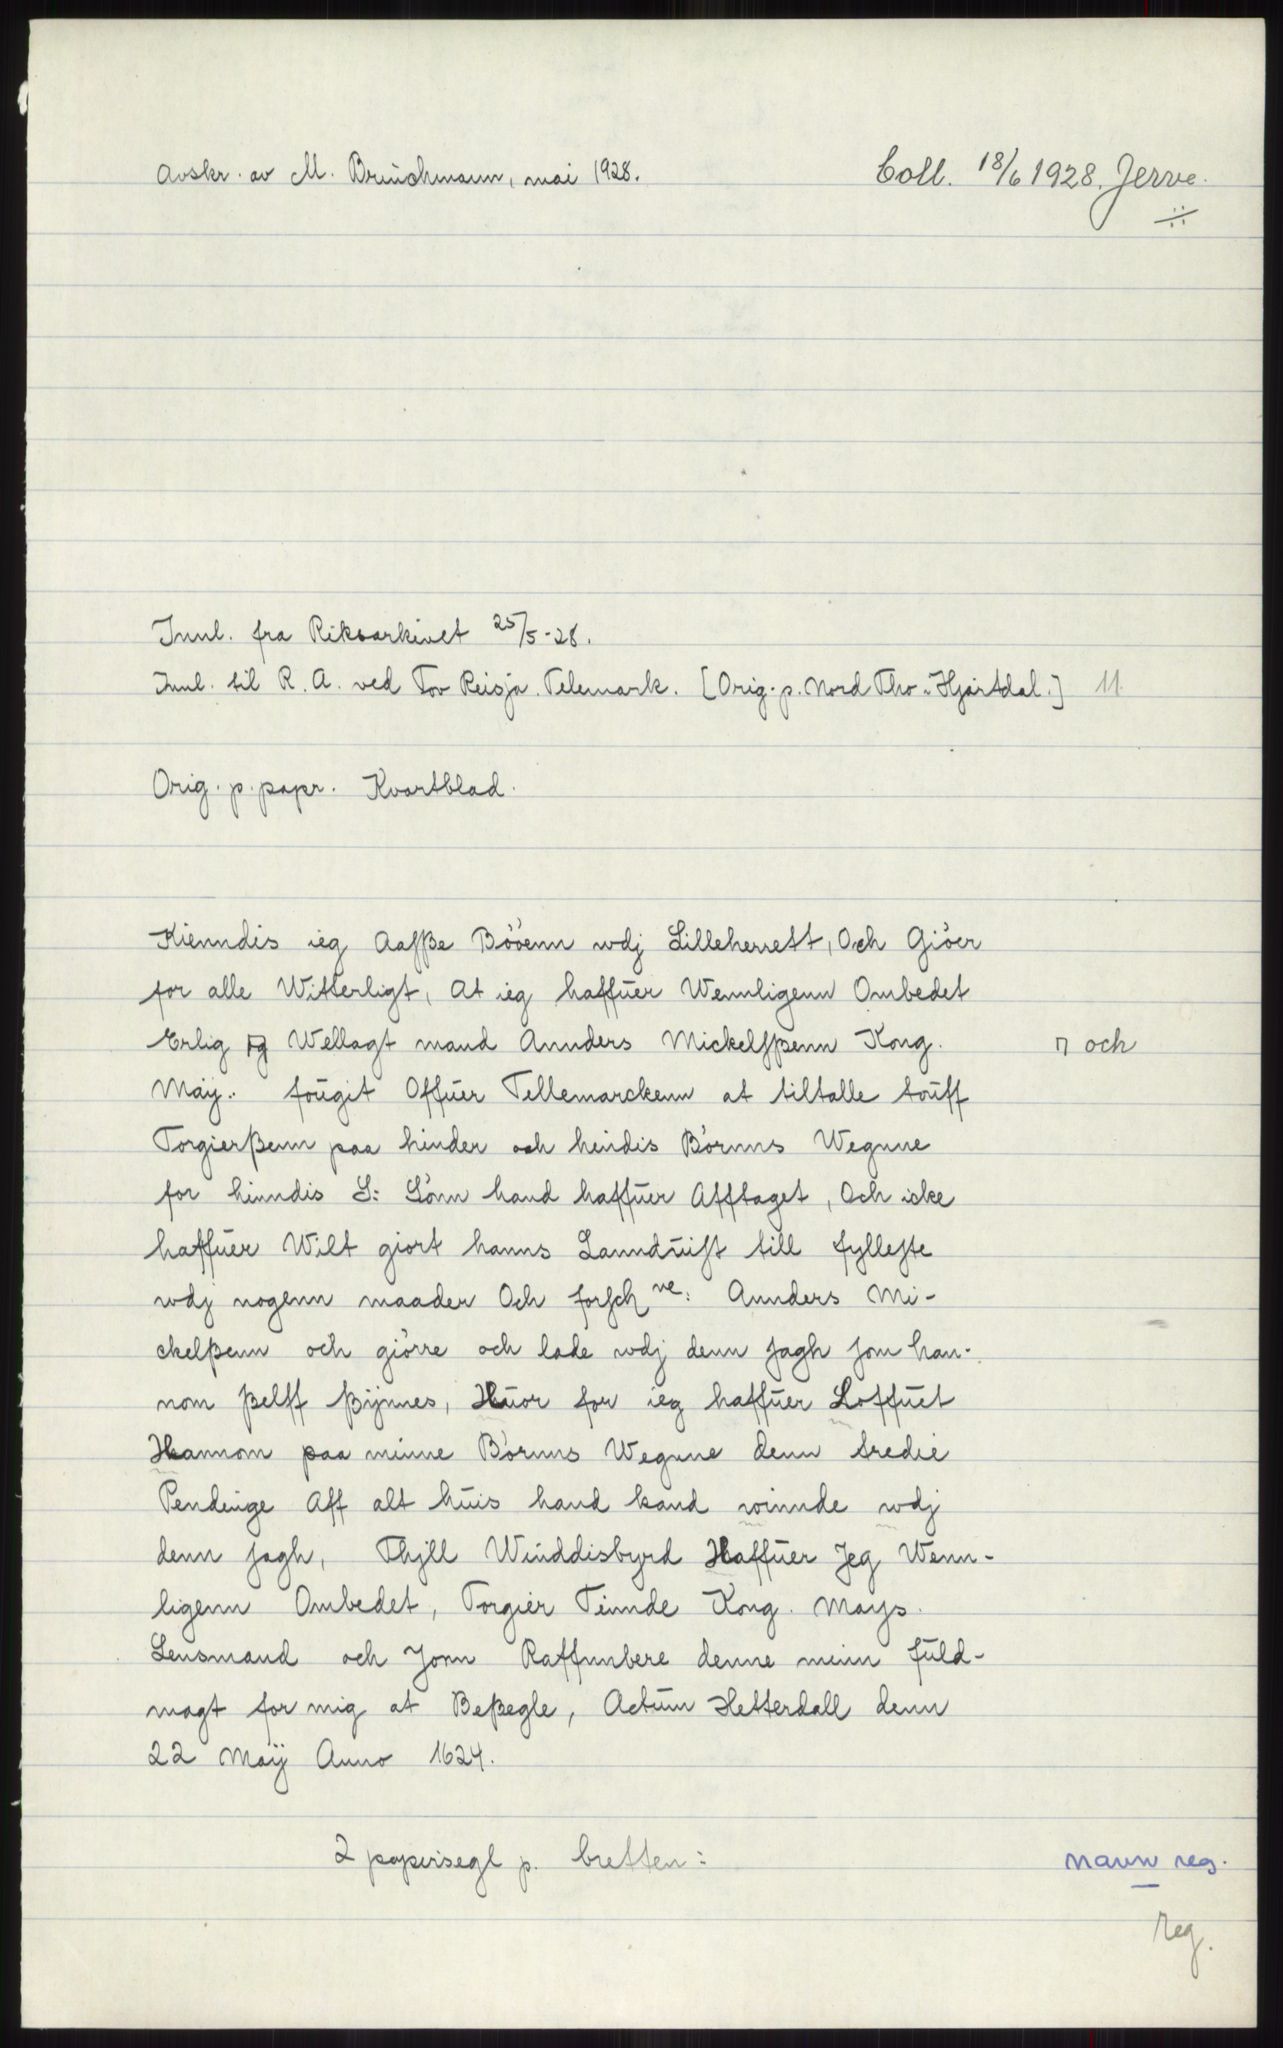 Avskr. av M. Brinchmann, mai 1928.
Coll. 18/6 1928. Jerve.
Innl. fra Riksarkivet 25/5-28.
Innl. til R. A. ved Tov Reisja. Telemark. [Orig. p. Nord Tho, Hjartdal.] 11.
Orig. p. papr. Kvartblad.
Kienndis ieg Aasße Böoenn wdj Lilleherrett, Och Giöer
for alle Witterligt, At ieg haffuer Wennligenn Ombedet
Erlig Wellagt mand Annders Mickelsßenn Kong. ⁊ och
Maÿ. fougit Offuer Tellemarckenn at tiltalle touff
Torgierßenn paa hinder och hindis Börnns Wegnne
for hinndis S: Sönn hand haffuer Afftaget, Och icke
haffuer Wilt giort hanns Lanndüist till fylleste
wdj nogenn maader Och forsch ne: Annders Mi-
ckelßenn och giörre och lade wdj denn sagh som han-
nom ßelff ßÿnnes, Huor for ieg haffuer Loffuet
Hannom paa minne Börnns Wegnne denn tredie
Pendinge Aff alt huis hand kand winnde wdj
denn sagh, Thjll Winddisbyrd Haffuer Jeg Wenn-
ligenn Ombedet, Torgier Tinnde Kong. Mays.
Lensmand och Jonn Raffnnbere denne minn fuld-
magt for mig at Beßegle, Actum Hetterdall denn
22 Maÿ Anno 1624.
2 papirsegl p. bretten:
navn reg.
reg.